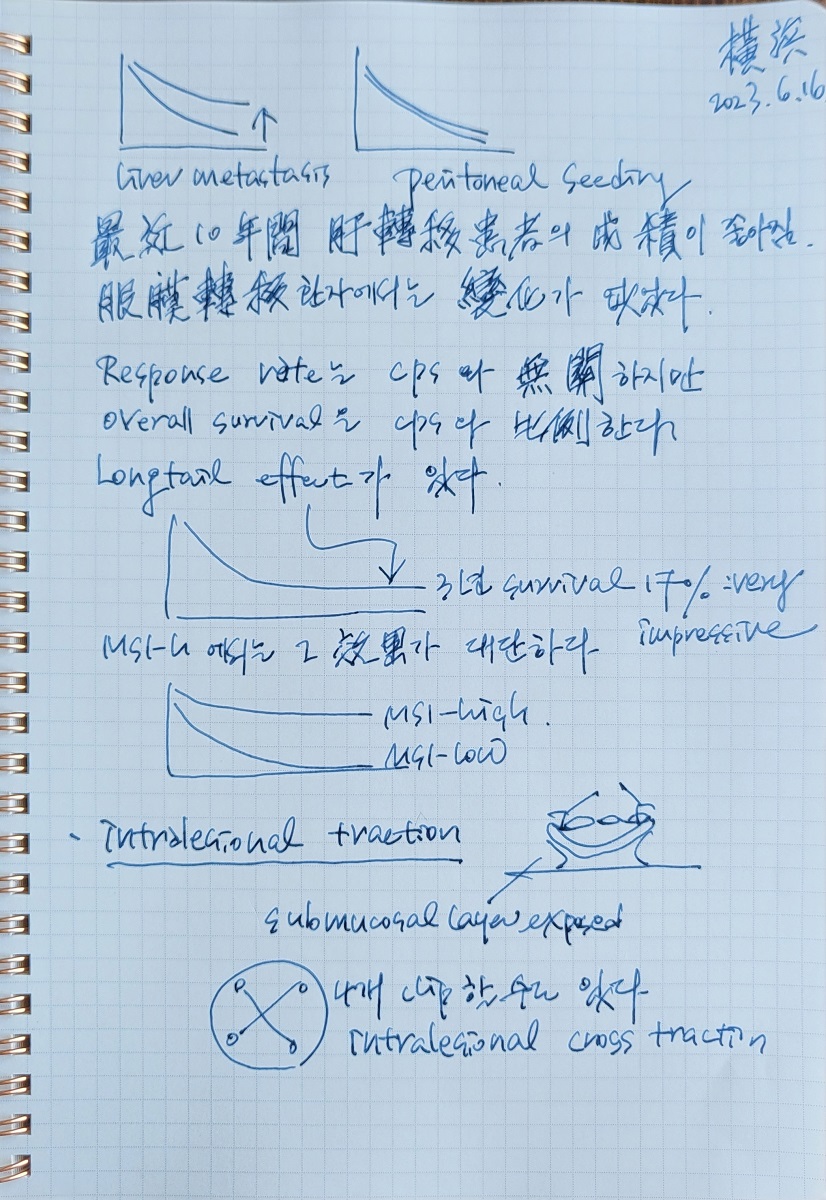 橫浜
2023.6.16
liver metastasis
peritoneal seeding
最近 10年間 肝轉移患者의 成績이 좋아짐.
腹膜轉移 환자에서는 變化가 없었다.
Response rate는 CPS와 無關하지만
overall survival은 CPS와 比例한다.
Longtail effect가 있다.
3년 survival 17% : very
impressive
MSI-H 에서는 그 效果가 대단하다
MSI-high.
MSI-low
Intralesional traction
submucosal layer exposed
4개 clip 할 수도 있다
intralesional cross traction